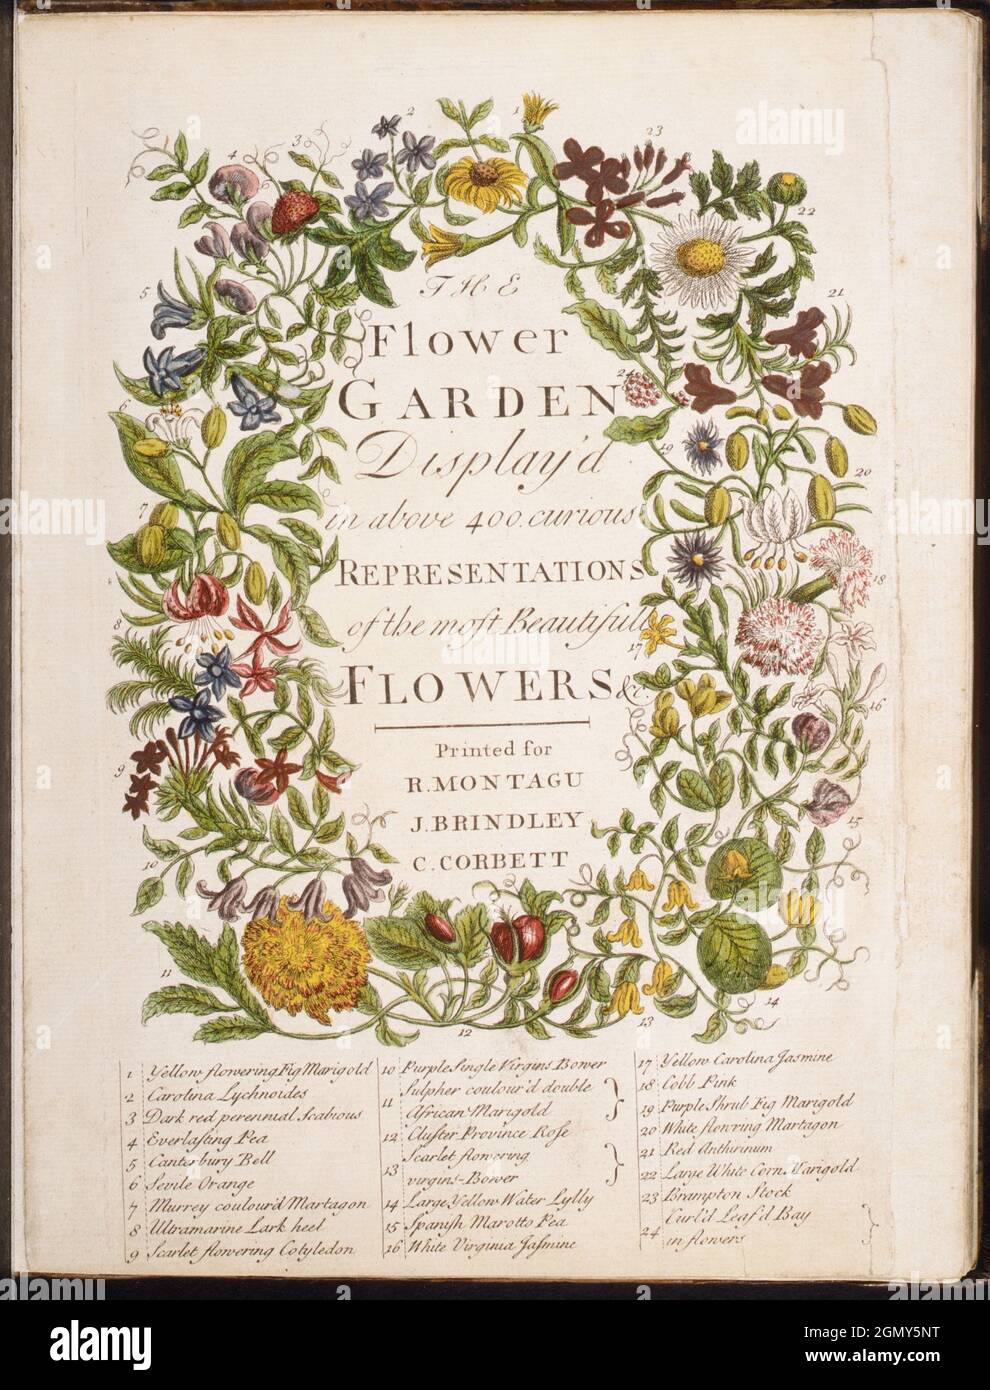 THE
Flower
GARDEN
Display'd
in above 400 curious
REPRESENTATIONS
of the moſt Beautifull
FLOWERS &c.
Printed for
R. MONTAGU
J. BRINDLEY
C. CORBETT
1 Yellow flowering Fig Marigold
2 Carolina Lychnoides
3 Dark red perennial Scabious
4 Everlaſting Pea
5 Canterbury Bell
6 Sevile Orange
7 Murrey coulour'd Martagon
8 Ultramarine Lark heel
9 Scarlet flowering Cotyledon
10 Purple Single Virgins Bower
11 Sulpher coulour'd double
African Marigold
12 Cluſter Province Roſe
13 Scarlet flowering
virgins-Bower
14 Large Yellow Water Lylly
15 Spaniſh Marotto Pea
16 White Virginia Jaſmine
17 Yellow Carolina Jasmine
18 Cobb Pink
19 Purple Shrub Fig Marigold
20 White flowring Martagon
21 Red Anthirinum
22 Large White Corn Marigold
23 Brampton Stock
24 Curl'd Leaf'd Bay
in flowers
1
2
3
4
5
7
8
9
10
11
12
13
14
15
16
17
18
19
20
21
22
23
24
alamy
alamy
Image ID: 2GMY5NT
www.alamy.com